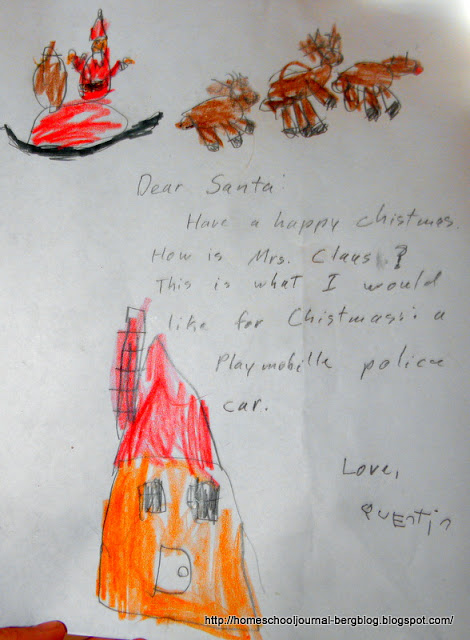 Dear Santa:
Have a happy Chistmas.
How is Mrs. Claus ?
This is what I would
like for Chistmass: a
Playmobille police
car.
Love,
QUEntin
http://homeschooljournal-bergblog.blogspot.com/